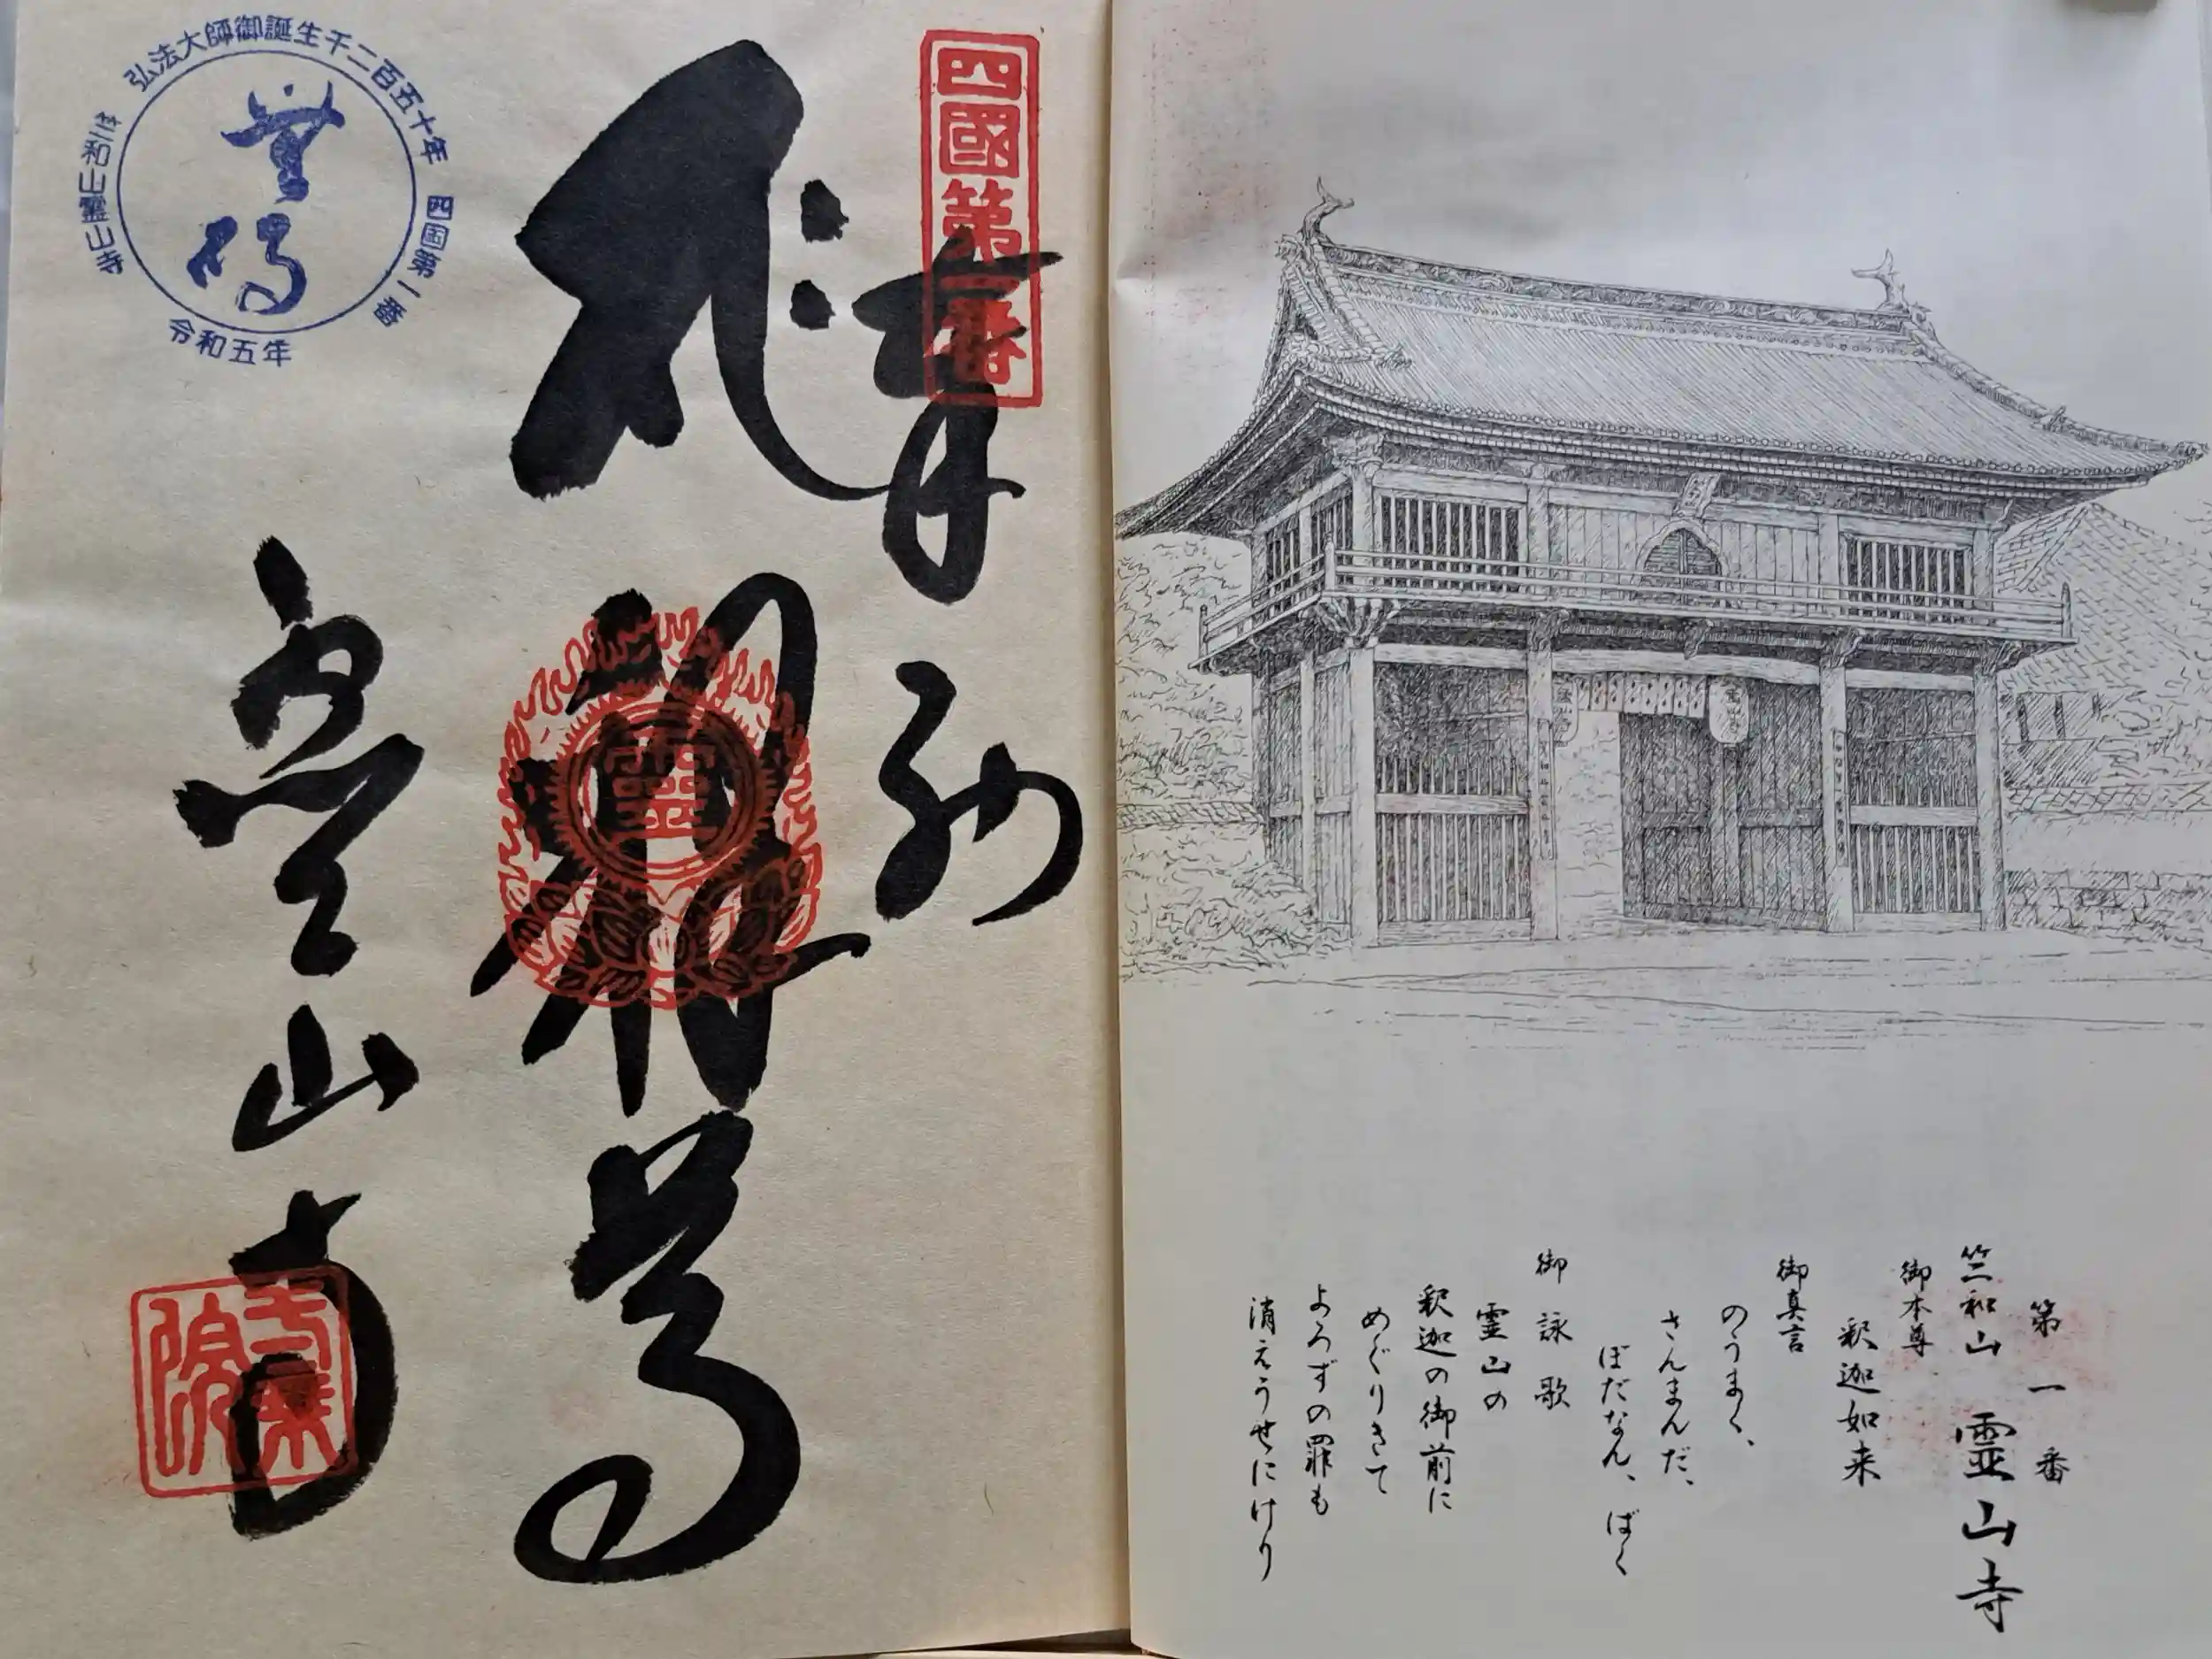 第一番
竺和山 霊山寺
御本尊
釈迦如来
御真言
のうまく、
さんまんだ、
ぼだなん、ばく
御詠歌
霊山の
釈迦の御前に
めぐりきて
よろずの罪も
消えうせにけり
四國第一番
奉納
釈迦尊
霊
霊山寺
一乗院
弘法大師御誕生千二百五十年
四国第一番
令和五年
霊山寺